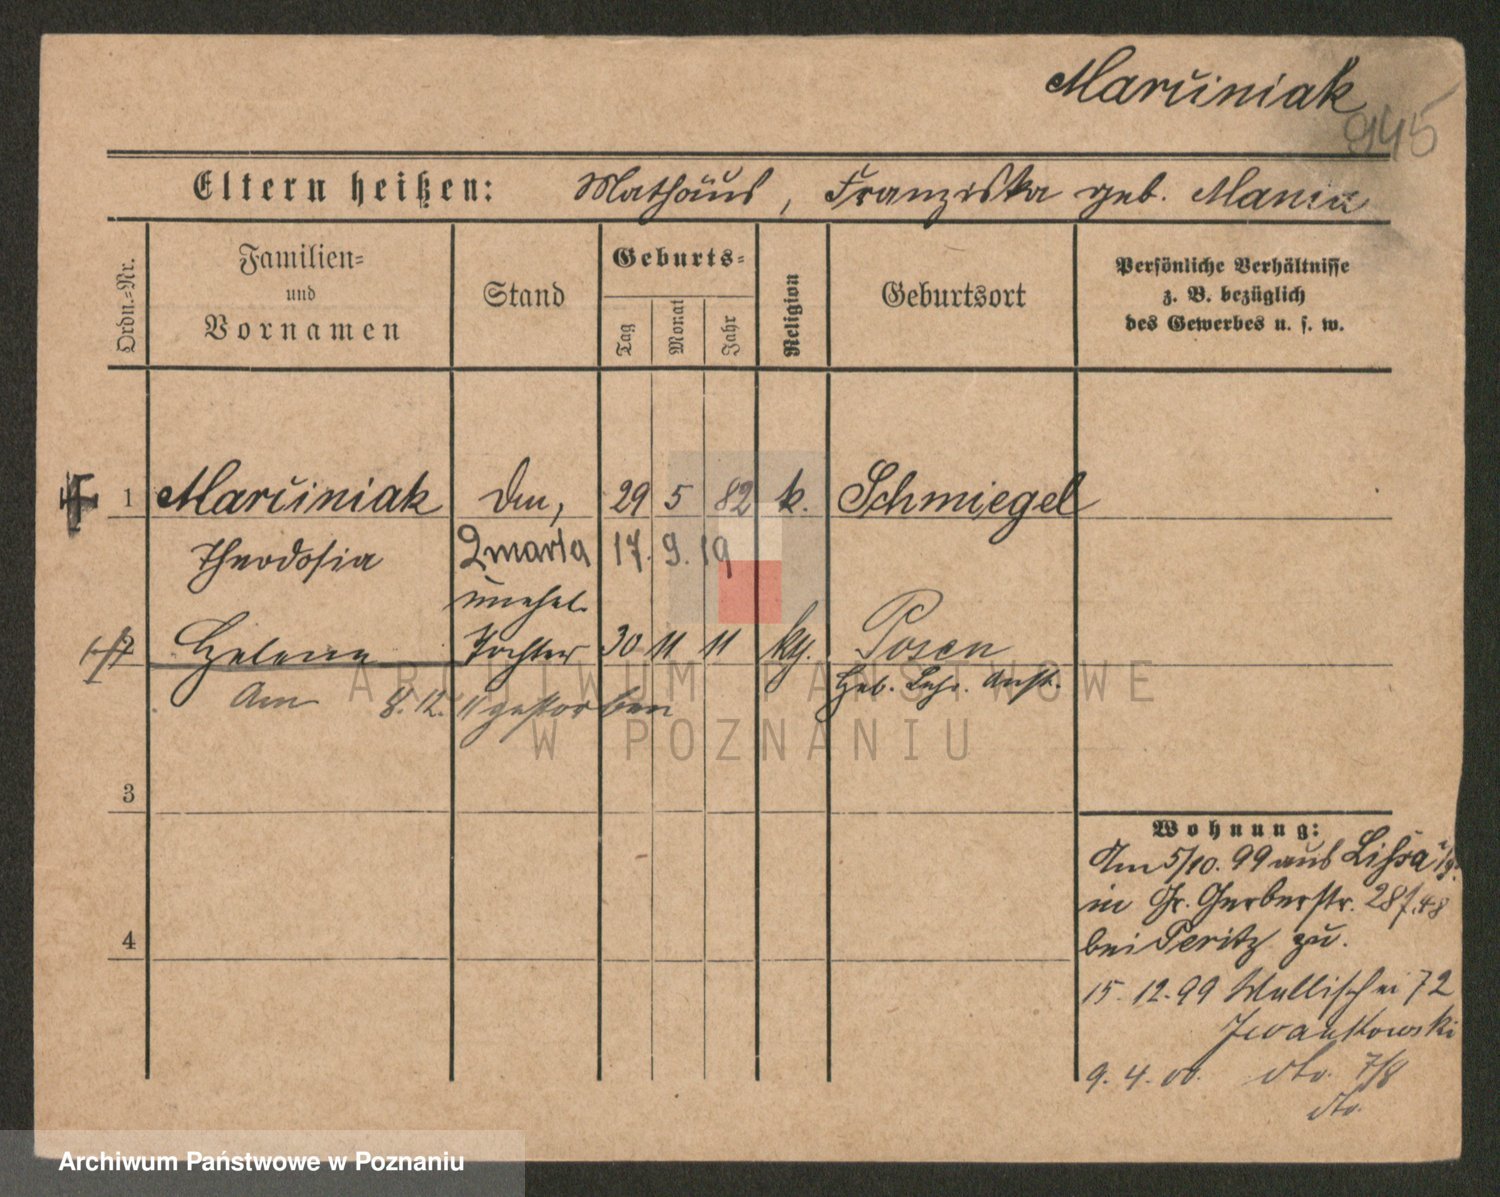 Marciniak
945
Eltern heißen: Mathäus, Franziska geb. Mania
Ordn.=Nr.
Familien=
und
Vornamen
Stand
Geburts=
Tag
Monat
Jahr
Religion
Geburtsort
Persönliche Verhältnisse
z. B. bezüglich
des Gewerbes u. s. w.
1 Marciniak 29 5 82 k. Schmiegel
Theodosia Zmarła 17. 9. 19
unehel.
2 Helene Tochter 30 11 11 kg. Posen
Heb. Lehr. Anst.
Am 8. 12. 11 gestorben
ARCHIWUM PAŃSTWOWE
W POZNANIU
3
4
Wohnung:
Am 5/10. 99 aus Lissa
in Gr. Gerberstr. 28
bei Peritz zu.
15. 12. 99 Wallischei 72
Iwankowski
9. 4. 00. dto. 7/8
dto.
Archiwum Państwowe w Poznaniu